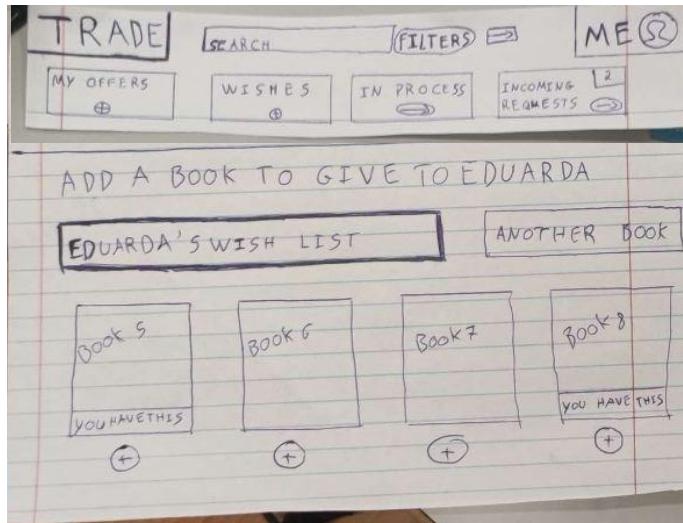 TRADE
SEARCH
FILTERS
ME
MY OFFERS
WISHES
IN PROCESS
INCOMING
REQUESTS
2
ADD A BOOK TO GIVE TO EDUARDA
EDUARDA'S WISH LIST
ANOTHER BOOK
BOOK 5
BOOK 6
BOOK 7
BOOK 8
YOU HAVE THIS
YOU HAVE THIS